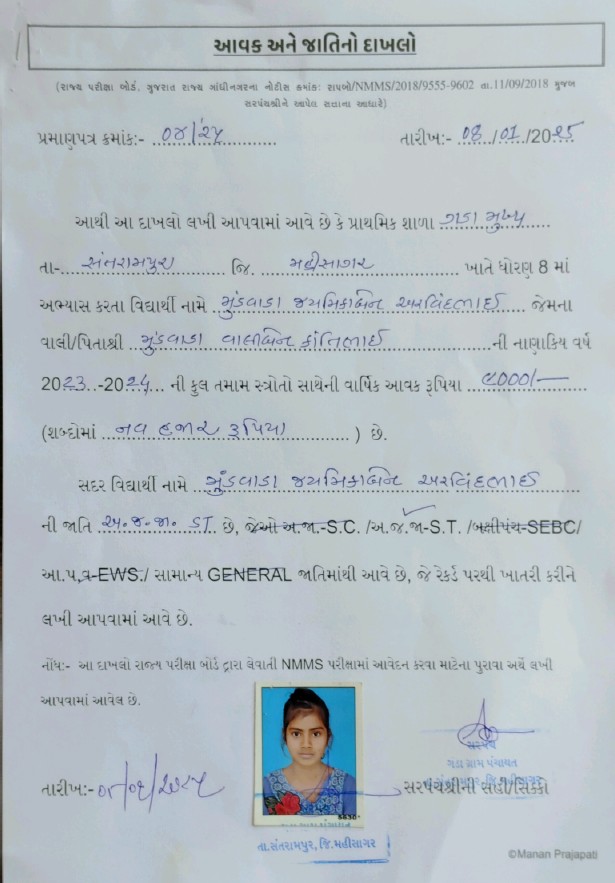 આવક અને જાતિનો દાખલો
(રાજ્ય પરીક્ષા બોર્ડ, ગુજરાત રાજ્ય ગાંધીનગરના નોટીસ ક્રમાંક: રાપબો/NMMS/2018/9555-9602 તા.11/09/2018 મુજબ
સરપંચશ્રીને આપેલ સત્તાના આધારે)
પ્રમાણપત્ર ક્રમાંક:- ૦૪/૨૫ તારીખ:- 08/01/2025
આથી આ દાખલો લખી આપવામાં આવે છે કે પ્રાથમિક શાળા ગડા મુખ્ય
તા- સંતરામપુર જિ. મહીસાગર ખાતે ધોરણ 8 માં
અભ્યાસ કરતા વિદ્યાર્થી નામે મુંડવાડા જયમિકાબેન અરવિંદભાઈ જેમના
વાલી/પિતાશ્રી મુંડવાડા વાલીબેન કાંતિભાઈ ની નાણાકિય વર્ષ
2023-2024 ની કુલ તમામ સ્ત્રોતો સાથેની વાર્ષિક આવક રૂપિયા ૯000/-
(શબ્દોમાં નવ હજાર રૂપિયા ) છે.
સદર વિદ્યાર્થી નામે મુંડવાડા જયમિકાબેન અરવિંદભાઈ
ની જાતિ અ.જ.જા. ST છે, જેઓ અ.જા.-S.C. /અ.જ.જા-S.T. /બક્ષીપંચ-SEBC/
આ.પ.વ-EWS./ સામાન્ય GENERAL જાતિમાંથી આવે છે, જે રેકર્ડ પરથી ખાતરી કરીને
લખી આપવામાં આવે છે.
નોંધ:- આ દાખલો રાજ્ય પરીક્ષા બોર્ડ દ્વારા લેવાતી NMMS પરીક્ષામાં આવેદન કરવા માટેના પુરાવા અર્થે લખી
આપવામાં આવેલ છે.
સરપંચ
ગડા ગ્રામ પંચાયત
તારીખ:- સરપંચશ્રીની સહી/સિક્કો
તા.સંતરામપુર, જિ.મહીસાગર
©Manan Prajapati